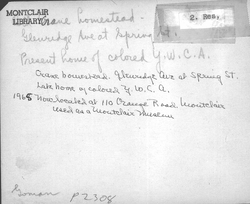 MONTCLAIR
LIBRARY
2. Res.
Crane homestead.
Glenridge Ave at Spring St.
Present home of colored Y.W.C.A.
Crane homestead. Glenridge Ave at Spring ST.
Late home of colored Y.W.C.A.
1965 Now located at 110 Orange Road Montclair
used as a Montclair Museum
P2308